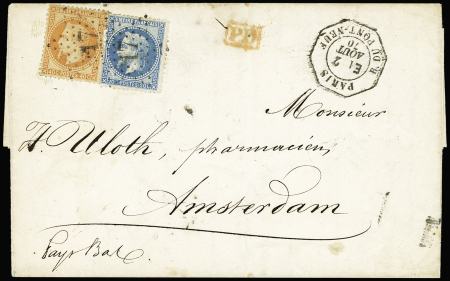 PD
PARIS
R. DU PONT-NEUF
E1
2
AOUT
70
Monsieur
F. Uloth, pharmacien,
Amsterdam
Pays Bas